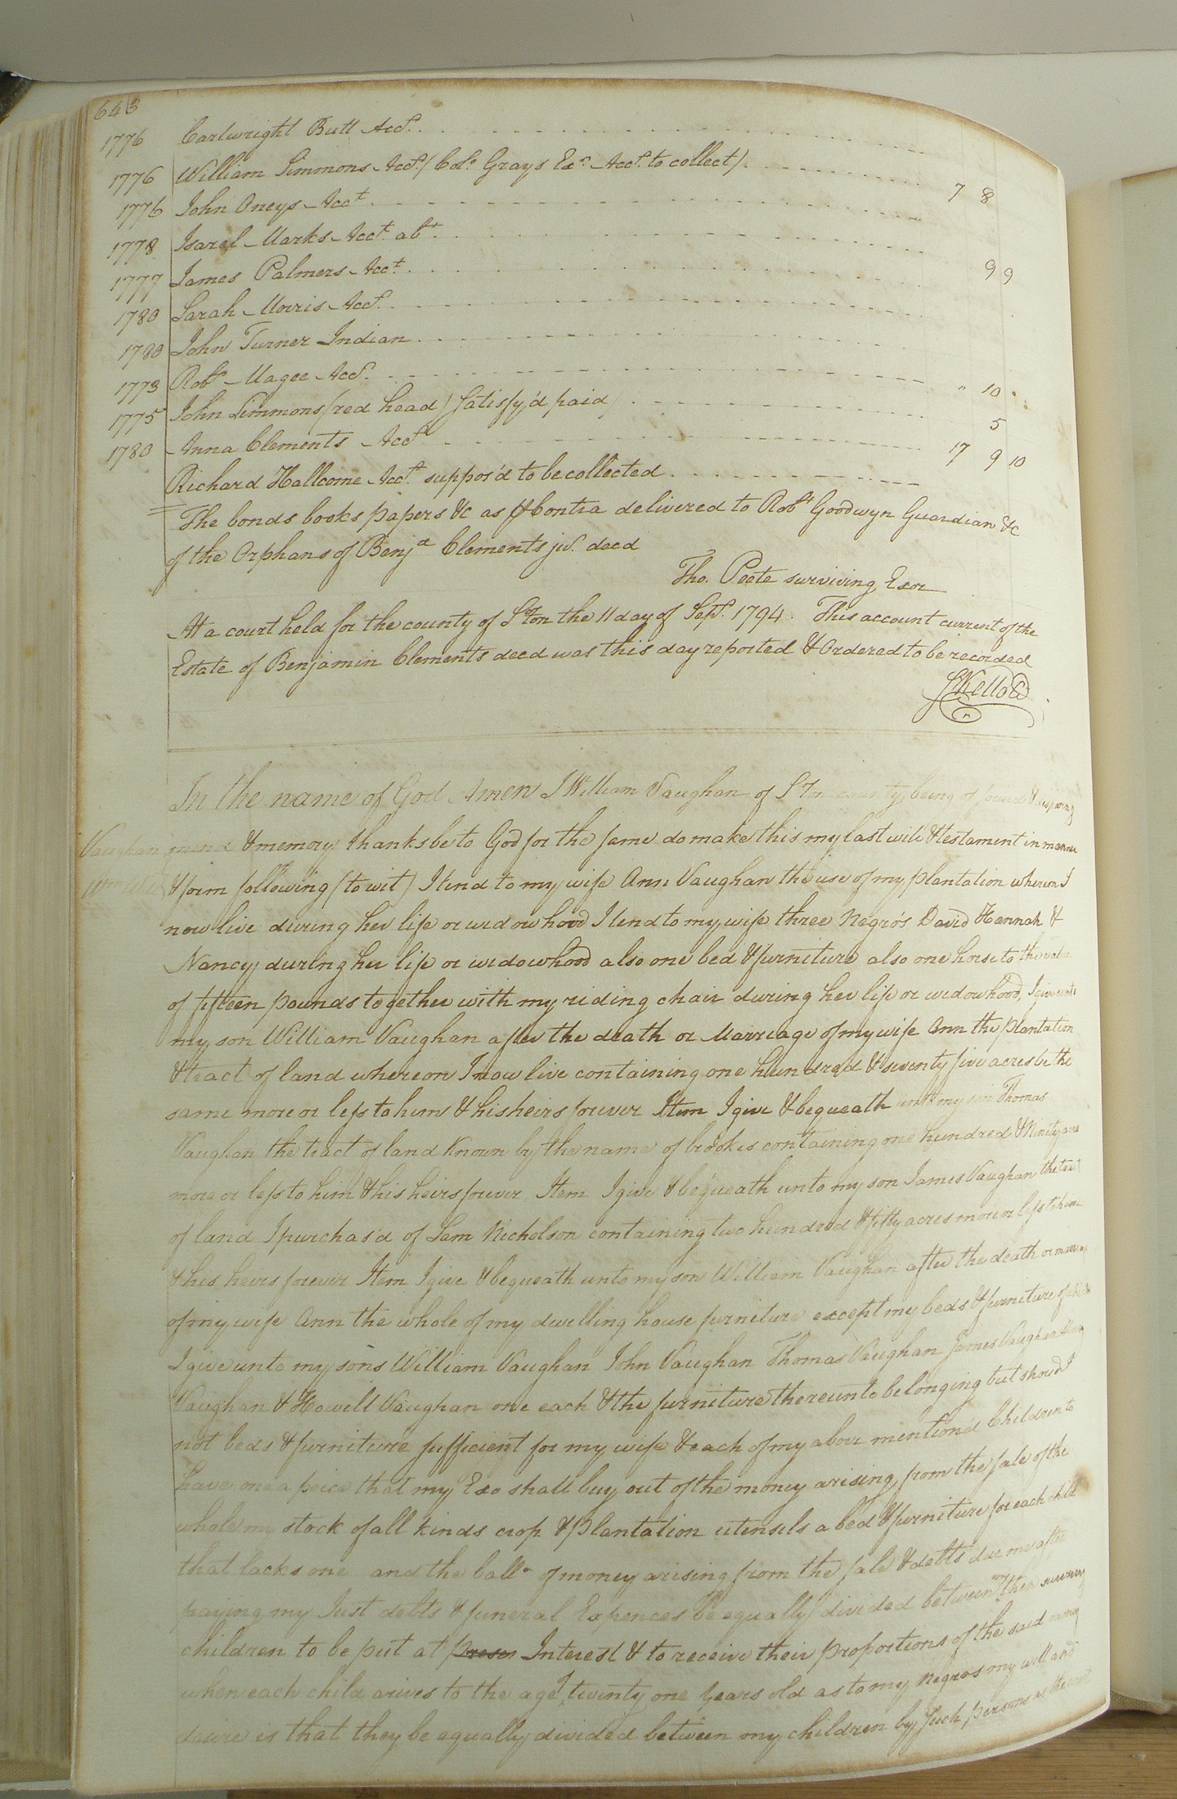 643
1776 Cartwright Butt Acct.
1776 William Simmons Acct. (Colo. Grays Exr. Acct. to collect) 7 8
1776 John Oneys Acct
1778 Isarel Marks Acct. abt. 9 9
1777 James Palmers Acct
1780 Sarah Morris Acct.
1780 John Turner Indian
1773 Robt. Magee Acct. " 10 "
1775 John Simmons (red head) satisfy'd paid 5
1780 Anna Clements Acct 17 9 10
Richard Hallcome Acct. suppos'd to be collected
The bonds books papers &c as Contra delivered to Robt. Goodwyn Guardian &c
of the Orphans of Benja. Clements jur. decd
Tho. Peete surviving Exor
At a court held for the county of S.ton the 11 day of Sept. 1794. This account current of the
Estate of Benjamin Clements decd was this day reported & Ordered to be recorded
S Kello
In the name of God Amen I William Vaughan of S.ton county being of sound & disposing
Vaughan mind & memory thanks be to God for the same do make this my last will & testament in manner
Wm Will & form following (to wit) I lend to my wife Ann Vaughan the use of my plantation whereon I
now live during her life or widowhood I lend to my wife three Negro's David Hannah &
Nancy during her life or widowhood also one bed & furniture also one horse to the value
of fifteen pounds together with my riding chair during her life or widowhood, I give unto
my son William Vaughan after the death or Marriage of my wife Ann the plantation
& tract of land whereon I now live containing one hundred & seventy five acres be the
same more or less to him & his heirs forever Item I give & bequeath unto my son Thomas
Vaughan the tract of land known by the name of brookes containing one hundred & Ninety acres
more or less to him & his heirs forever Item I give & bequeath unto my son James Vaughan the tract
of land I purchas'd of Sam Nicholson containing two hundred & fifty acres more or less to him
& his heirs forever Item I give & bequeath unto my son William Vaughan after the death or marriage
of my wife Ann the whole of my dwelling house furniture except my beds & furniture of which
I give unto my sons William Vaughan John Vaughan Thomas Vaughan James Vaughan
Vaughan & Howell Vaughan one each & the furniture thereunto belonging but should
not beds & furniture sufficient for my wife & each of my above mentiond Children to
have one a peice that my Exo shall buy out of the money arising from the sale of the
whole my stock of all kinds crop & Plantation utensils a bed & furniture for each child
that lacks one and the balle. of money arising from the sale & debts due me after
paying my Just debts & funeral Expences be equally divided between my then surviving
children to be put at Interest & to receive their proportions of the said money
when each child arives to the age twenty one years old as to my negros my will and
desire is that they be equally divided between my children by such persons as the